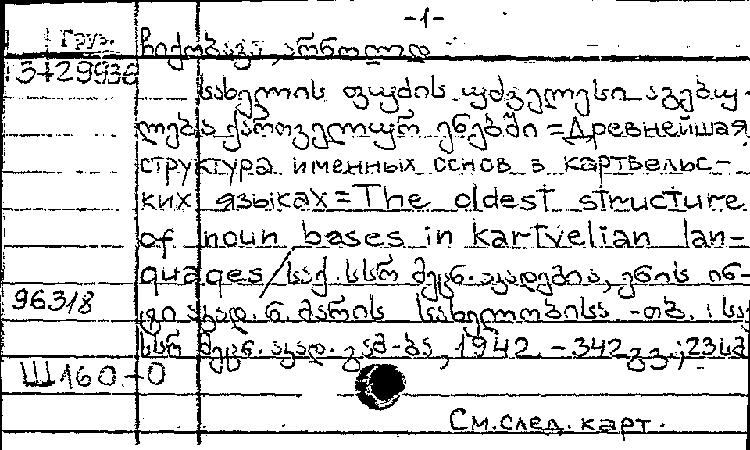 -1-
Груз. ჩიქობავა, არნოლდ
3429936
სახელის ფუძის უძველესი აგებუ-
ლება ქართველურ ენებში = Древнейшая
структура именных основ в картвельс-
ких языках = The oldest structure
of noun bases in kartvelian lan-
quages / საქ. სსრ მეცნ. აკადემია, ენის ინ-
96318
ტი აკად. ნ. მარის სახელობისა. - თბ. : საქ
სსრ მეცნ. აკად. გამ-ბა, 1942. - 342 გვ.; 23სმ
Ш160.-0
См. след. карт.